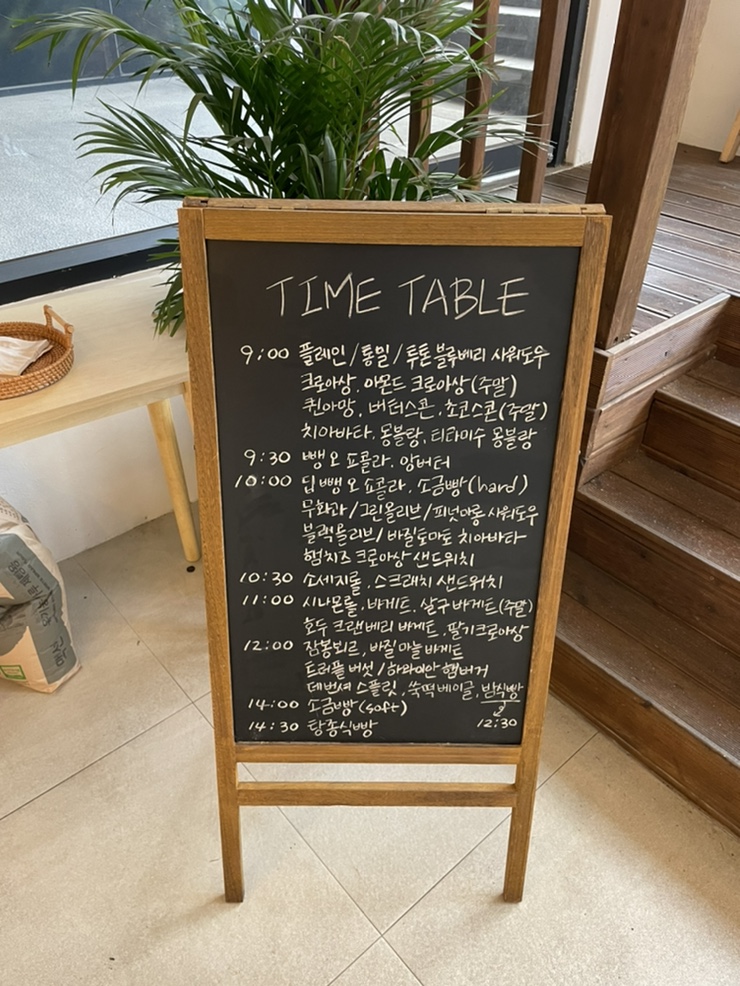 TIME TABLE
9:00 플레인/통밀/투톤 블루베리 사워도우
크로아상, 아몬드 크로아상(주말)
퀸아망, 버터스콘, 초코스콘(주말)
치아바타, 몽블랑, 티라미수 몽블랑
9:30 뺑오쇼콜라, 앙버터
10:00 딥 뺑오쇼콜라, 소금빵(hard)
무화과/그린올리브/피넛마롱 사워도우
블랙올리브/바질토마토 치아바타
햄치즈 크로아상 샌드위치
10:30 소세지롤, 스크래치 샌드위치
11:00 시나몬롤, 바게트, 살구 바게트(주말)
호두 크랜베리 바게트, 딸기크로아상
12:00 잠봉뵈르, 바질마늘바게트
트러플 버섯/하와이안 햄버거
데번셔 스플릿, 쑥떡베이글, 밤식빵
14:00 소금빵(soft)
14:30 탕종식빵 12:30